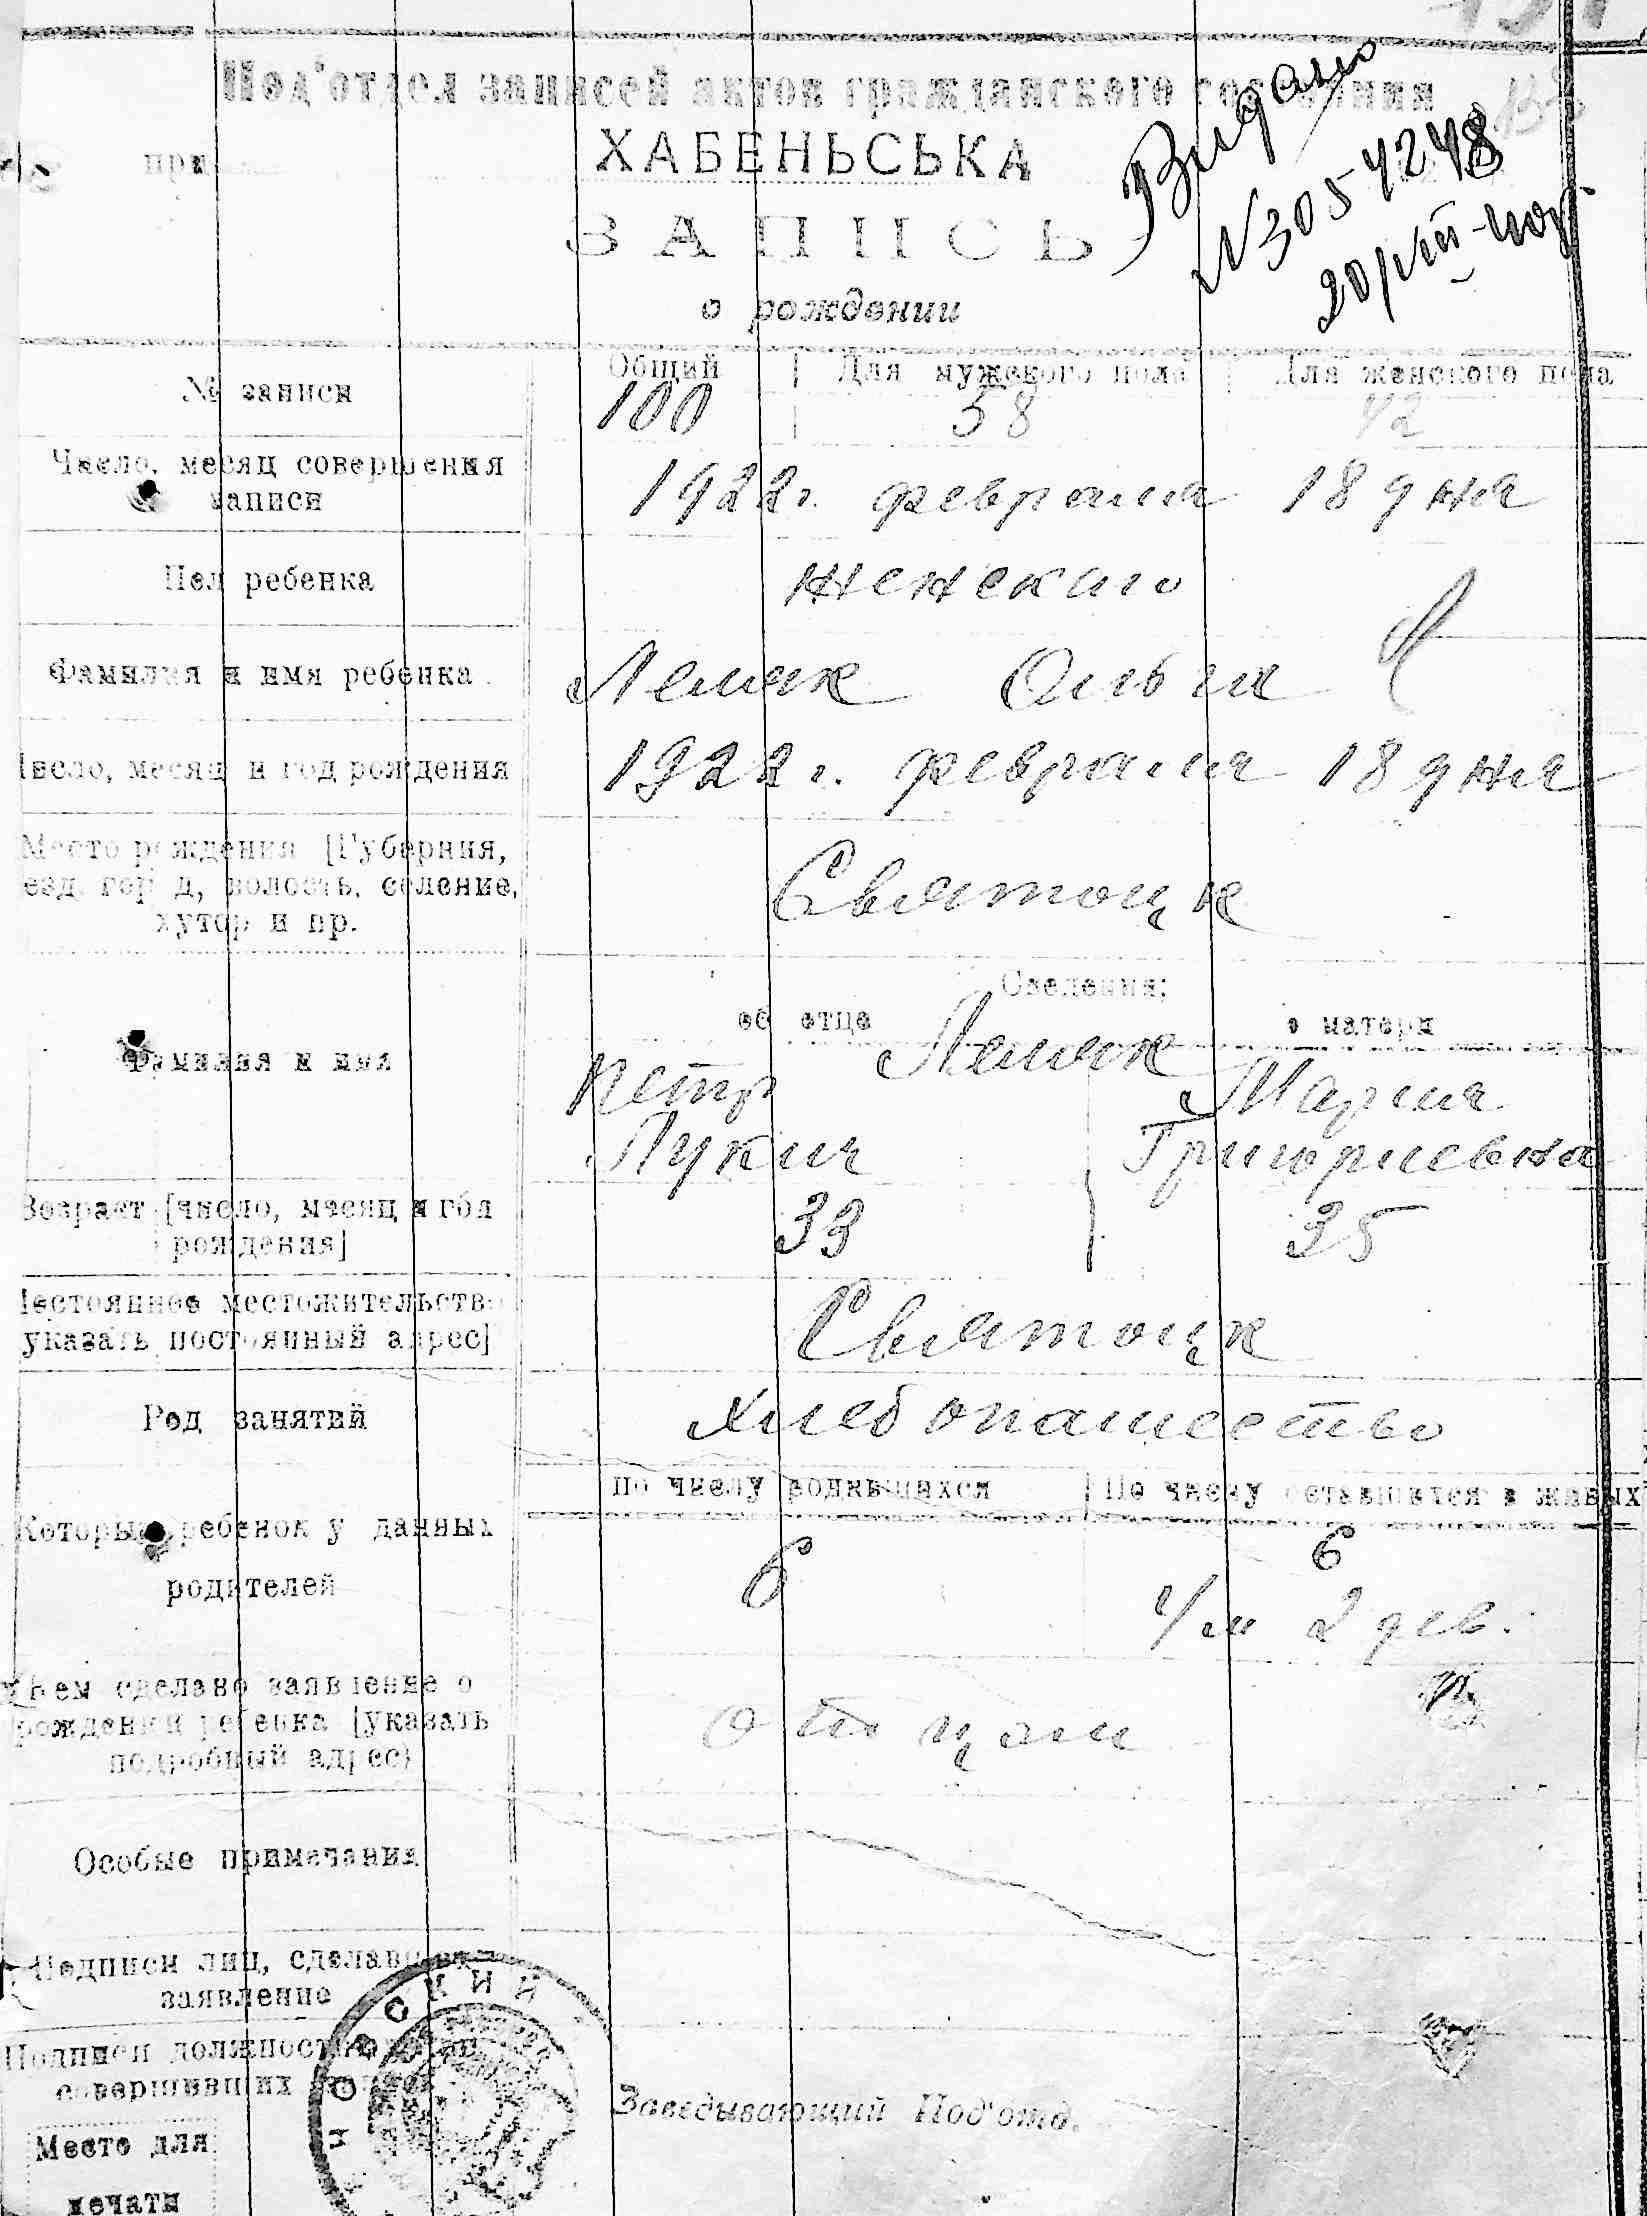 Под'отдел записей актов гражданского состояния
при
ХАБЕНЬСЬКА
Видано
N3054248
ЗАПИСЬ
о рождении
№ записи
Общий Для мужского пола Для женского пола
100 58 42
Число, месяц совершения
записи
1922 г. февраля 18 дня
Пол ребенка
женскаго
Фамилия и имя ребенка
Лемяк Ольга
Число, месяц и год рождения
1922 г. февраля 18 дня
Место рождения [Губерния,
езд, город, волость, селение,
хутор и пр.
Святоцк
Сведения:
об отце о матери
Фамилия и имя
Лемяк
Петр Мария
Лукич Григориевна
Возраст [число, месяц и год
рождения]
33 35
Постоянное местожительство
указать постоянный адрес]
Святоцк
Род занятий
Хлебопашество
По числу родившихся По числу оставшихся в живых
Который ребенок у данных
родителей
6 6
4/м 2 дев.
Кем сделано заявление о
рождении ребенка [указать
подробный адрес)
отцом
Особые примечания
Подписи лиц, сделавших
заявление
Подписи должностных лиц
совершивших
Заведывающий Под'отд.
Место для
печати